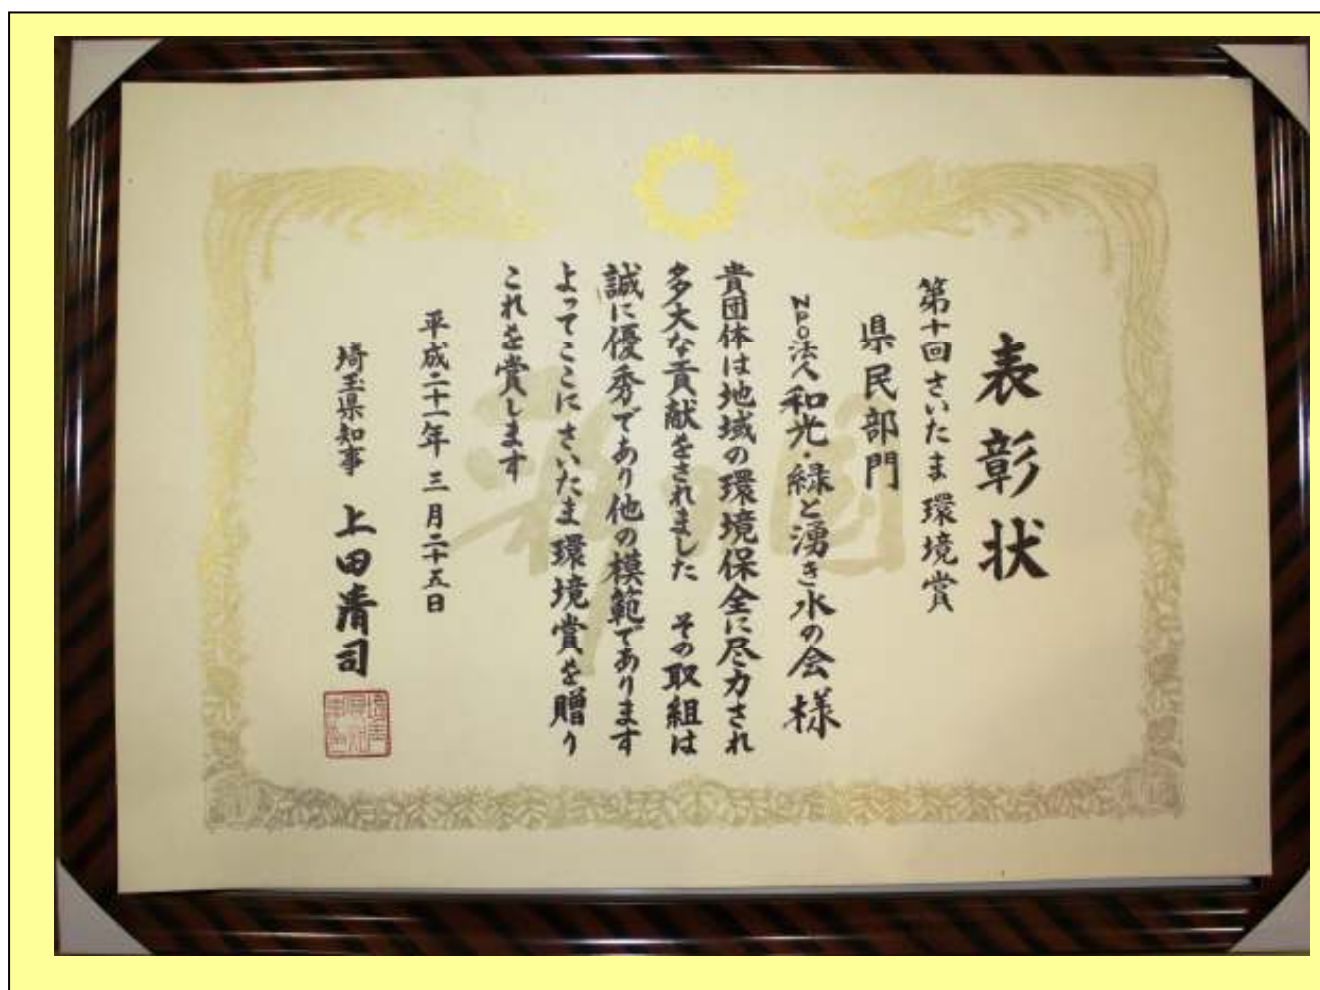 表彰状
第十回さいたま環境賞
県民部門
NPO法人和光・緑と湧き水の会様
貴団体は地域の環境保全に尽力され
多大な貢献をされました その取組は
誠に優秀であり他の模範であります
よってここにさいたま環境賞を贈り
これを賞します
平成二十一年三月二十五日
埼玉県知事 上田清司
彩の国